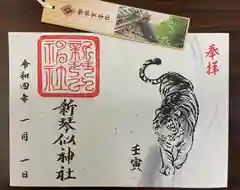 新琴似神社
奉拝
壬寅
新琴似神社
令和四年 一月 一日